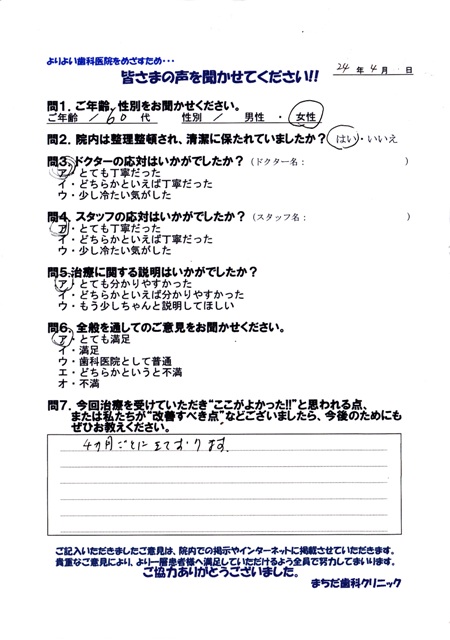 よりよい歯科医院をめざすため・・・
24年 4月 日
皆さまの声を聞かせてください!!
問1. ご年齢、性別をお聞かせください。
ご年齢 / 60 代 性別 / 男性 ・ 女性
問2. 院内は整理整頓され、清潔に保たれていましたか? はい・いいえ
問3. ドクターの応対はいかがでしたか?(ドクター名: )
ア・とても丁寧だった
イ・どちらかといえば丁寧だった
ウ・少し冷たい気がした
問4. スタッフの応対はいかがでしたか?(スタッフ名: )
ア・とても丁寧だった
イ・どちらかといえば丁寧だった
ウ・少し冷たい気がした
問5. 治療に関する説明はいかがでしたか?
ア・とても分かりやすかった
イ・どちらかといえば分かりやすかった
ウ・もう少しちゃんと説明してほしい
問6. 全般を通してのご意見をお聞かせください。
ア・とても満足
イ・満足
ウ・歯科医院として普通
エ・どちらかというと不満
オ・不満
問7. 今回治療を受けていただき“ここがよかった!!”と思われる点、
または私たちが“改善すべき点”などございましたら、今後のためにも
ぜひお教えください。
4ヵ月ごとに まております。
ご記入いただきましたご意見は、院内での掲示やインターネットに掲載させていただきます。
貴重なご意見により、より一層患者様へ満足していただけるよう全員で努力してまいります。
ご協力ありがとうございました。
まちだ歯科クリニック